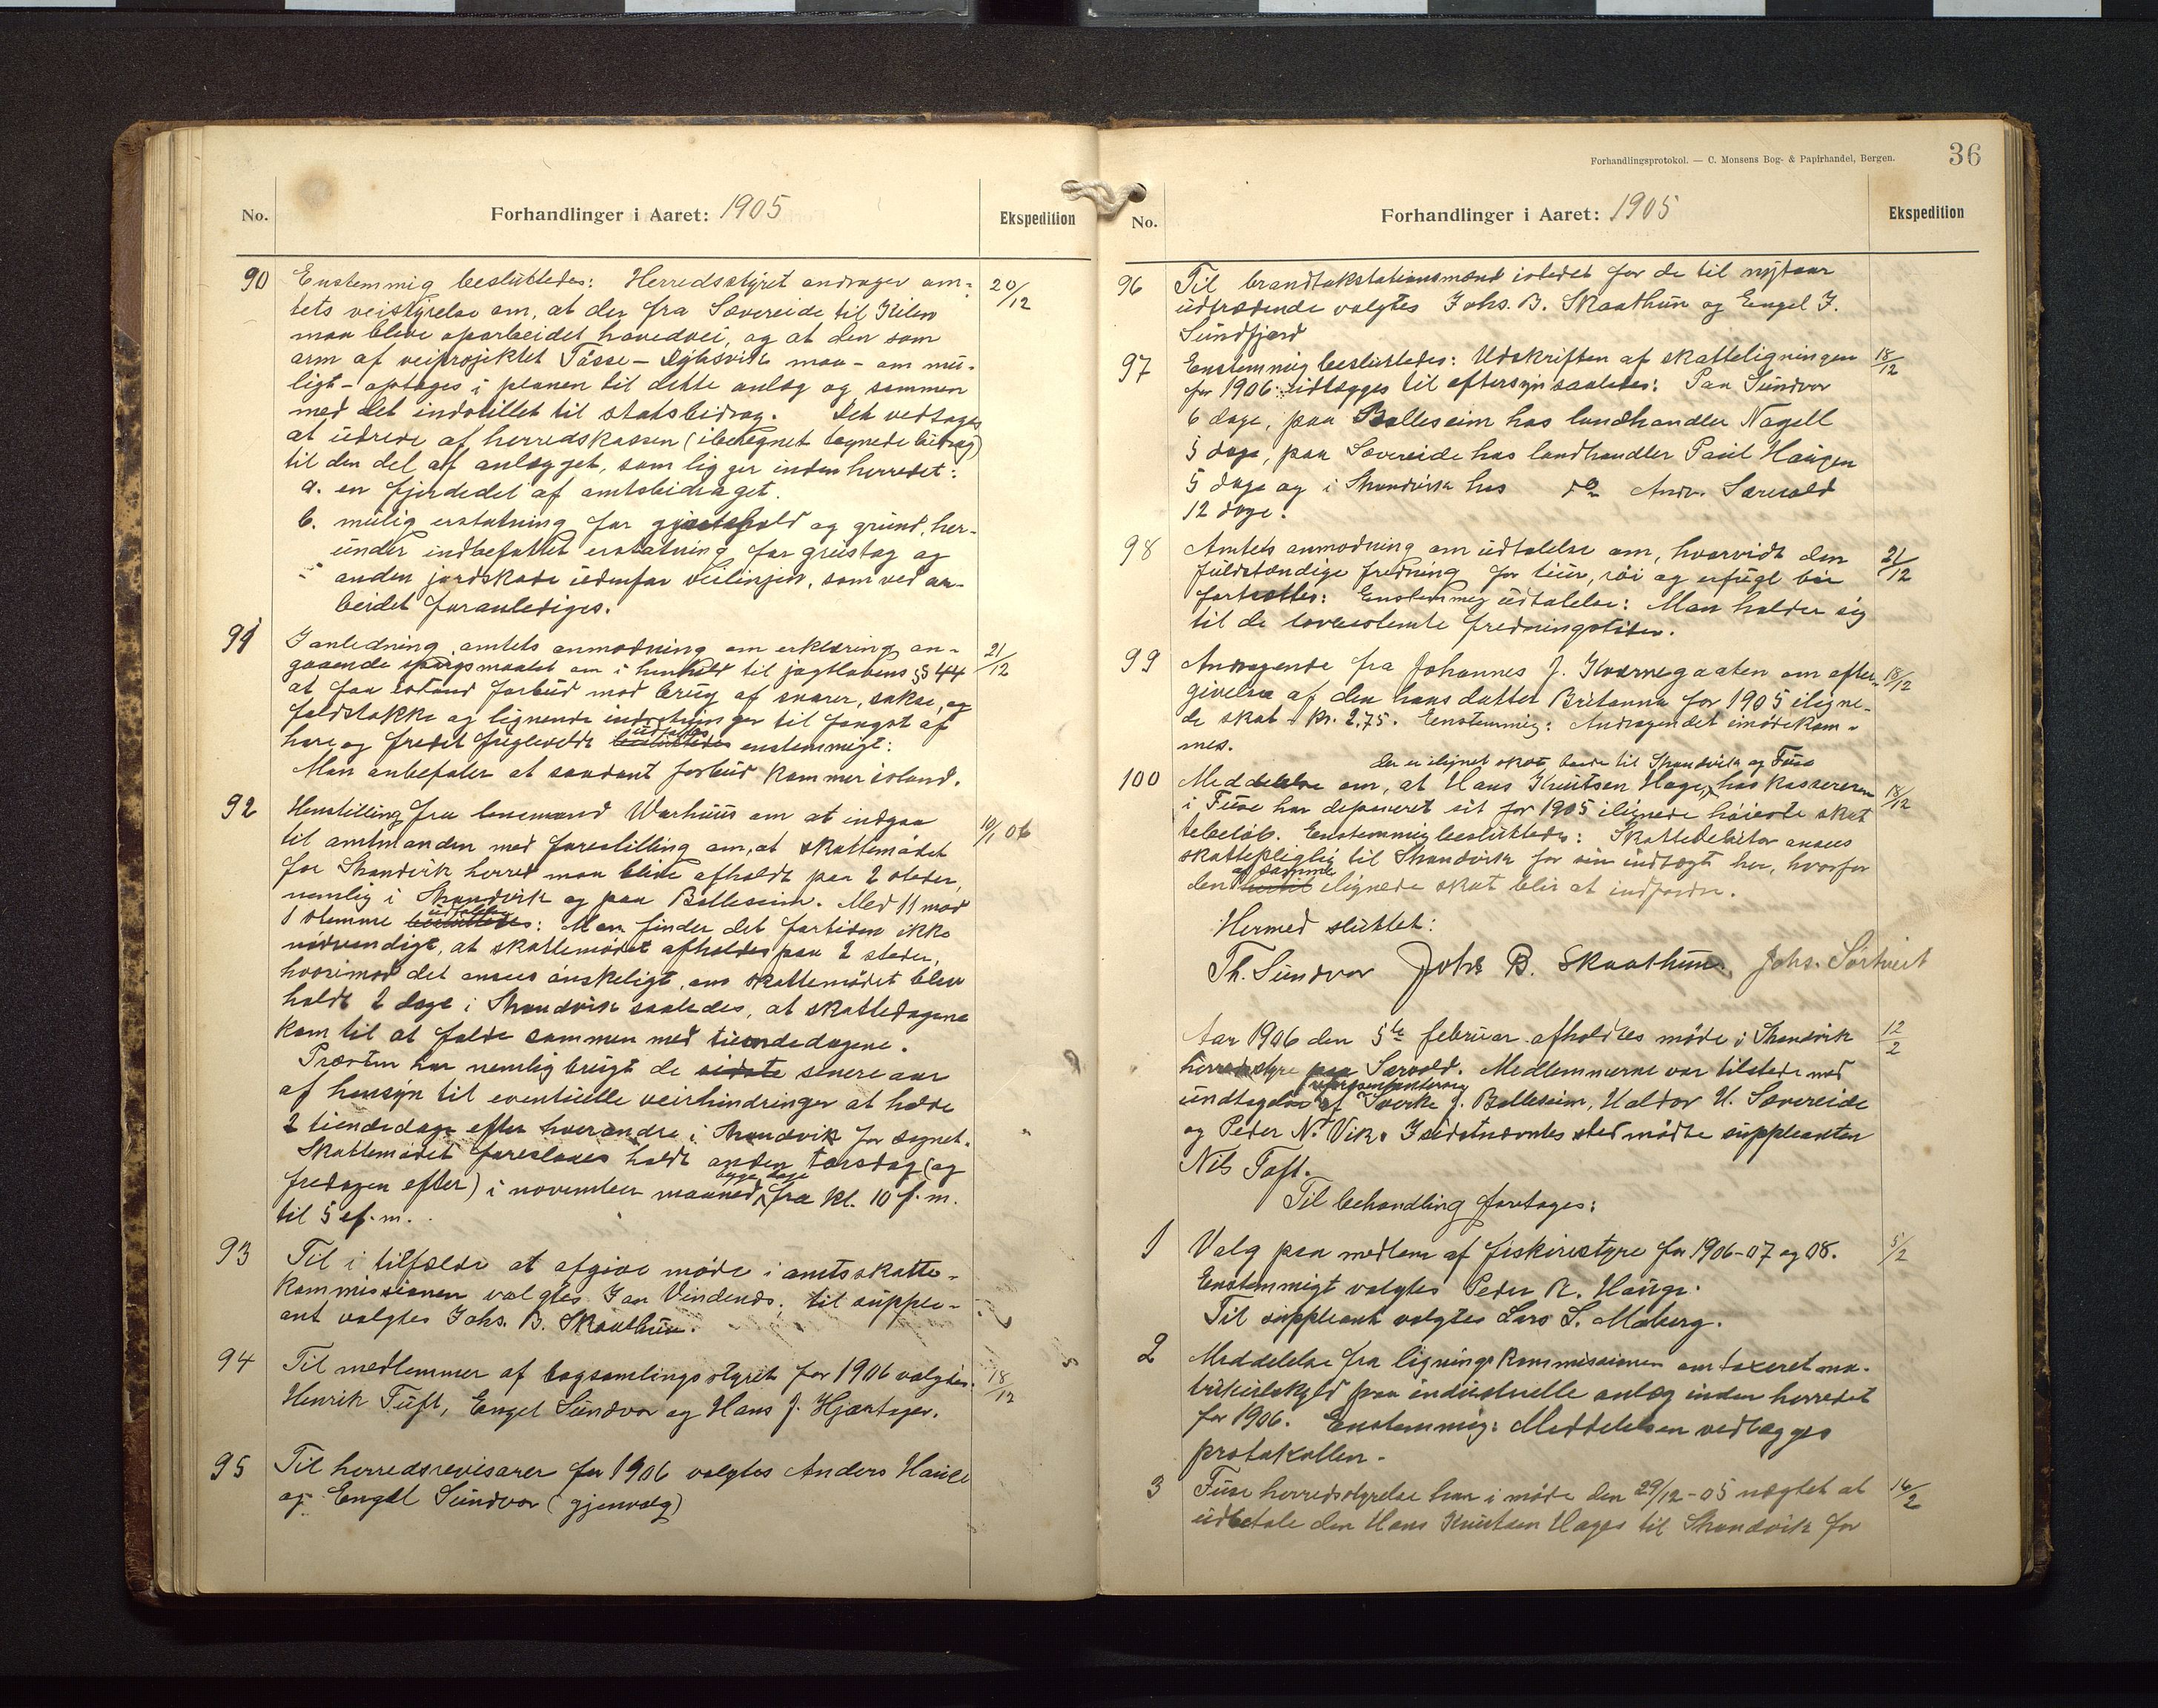 No.
Forhandlinger i Aaret: 1905
Ekspedition
90 Enstemmig besluttedes: Herredsstyret andrager am- 20/12
tets veistyrelse om, at der fra Sævereide til Kilen
maa blive oparbeidet hovedvei, og at den som
arm af veiprojektet Tösse – maa – om mu-
ligt – optages i planen til dette anlæg og sammen
med det indstillet til statsbidrag. Det vedtages
at udrede af herredskassen (iberegnet tegnede bidrag)
til den del af anlægget, som ligger inden herredet:
a. en fjerdedel af amtsbidraget.
b. mulig erstatning for gjærdehold og grund, her-
under indbefattet erstatning for grustag og
anden jordskade udenfor veilinjen, som ved ar-
beidet foranlediges.
91 I anledning amtets anmodning om erklæring an- 21/12
gaaende spørgsmaalet om i henhold til jagtlovens § 44
at faa istand forbud mod brug af snarer, sakse, og
faldstokke og lignende indretninger til fangst af
hare og fredet fuglevildt besluttedes udtaltes enstemmigt:
Man anbefaler at saadant forbud kommer istand.
92 Henstilling fra lensmand Warhuus om at indgaa 10/1 06
til amtmanden med forestilling om, at skattemödet
for Strandvik herred maa blive afholdt paa 2 steder,
nemlig i Strandvik og paa Bolleseim. Med 11 mod
1 stemme besluttedes udtaltes: Man finder det fortiden ikke
nödvendigt, at skattemödet afholdes paa 2 steder,
hvorimod det ansees önskeligt, om skattemödet blev
holdt 2 dage i Strandvik saaledes, at skattedagene
kom til at falde sammen med tiendedagene.
Præsten har nemlig brugt de sidste senere aar
af hensyn til eventuelle veirhindringer at holde
2 tiendedage efter hverandre i Strandvik for sognet.
Skattemödet foreslaaes holdt anden torsdag (og
fredagen efter) i november maaned, begge dage fra kl. 10 f.m.
til 5 ef.m.
93 Til i tilfælde at afgive möde i amtsskatte-
kommissionen valgtes Jan Vindenes; til supple-
ant valgtes Johs. B. Skaathun.
94 Til medlemmer af bogsamlingsstyret for 1906 valgtes 18/12
Henrik Tuft, Engel Sundvor og Hans J. Hjartager.
95 Til herredsrevisorer for 1906 valgtes Anders Hauge
og Engel Sundvor (gjenvalg)
Forhandlingsprotokol. — C. Monsens Bog- & Papirhandel, Bergen.
36
No.
Forhandlinger i Aaret: 1905
Ekspedition
96 Til brandtakstationsmænd istedet for de til nytaar
udtrædende valgtes Johs. B. Skaathun og Engel J.
Sundfjord
97 Enstemmig besluttedes: Udskriften af skatteligningen 18/12
for 1906 udlægges til eftersyn saaledes: Paa Sundvor
6 dage, paa Bolleseim hos landhandler Nagell
5 dage, paa Sævereide hos landhandler Paul Haugen
5 dage og i Strandvik hos do Andr. Særvold
12 dage.
98 Amtets anmodning om udtalelse om, hvorvidt den 21/12
fuldstændige fredning for tiur, röi og orfugl bör
fortsættes: Enstemmig udtalelse: Man holder sig
til de lovbestemte fredningstider.
99 Andragende fra Johannes J. Kvernegaaten om efter- 18/12
givelse af den hans datter Britanna for 1905 iligne-
de skat kr. 2.75. Enstemmig: Andragendet imödekom-
mes.
der er ilignet skat baade til Strandvik og Fuse
100 Meddelelse om, at Hans Knutsen Hage, hos kassereren 18/12
i Fuse har deponeret sit for 1905 ilignede höieste skat
tebelöb. Enstemmig besluttedes: Skattedebitor ansees
skattepligtig til Strandvik for sin indtægt her, hvorfor
den hertil af samme ilignede skat blir at indfordre.
Hermed sluttet:
Th. Sundvor Johs B. Skaathun. Johs. Sörtveit
Aar 1906 den 5te februar afholdtes möde i Strandvik 12/2
herredsstyre paa Særvold. Medlemmerne var tilstede med
undtagelse af repræsentanterne Sverke J. Bolleseim, Haldor H. Sævereide
og Peder N. Vik. I sidstnævntes sted mödte suppleanten
Nils Toft.
Til behandling foretages:
1 Valg paa medlem af fiskeristyre for 1906-07 og 08. 5/2
Enstemmigt valgtes Peder R. Hauge.
Til suppleant valgtes Lars L. Moberg.
2 Meddelelse fra ligningskommissionen om taxeret ma-
trikulskyld paa industrielle anlæg inden herredet
for 1906. Enstemmig: Meddelelsen vedlægges
protokollen.
3 Fuse herredsstyrelse har i möde den 29/12-05 nægtet at 16/2
udbetale den Hans Knutsen Hages til Strandvik for